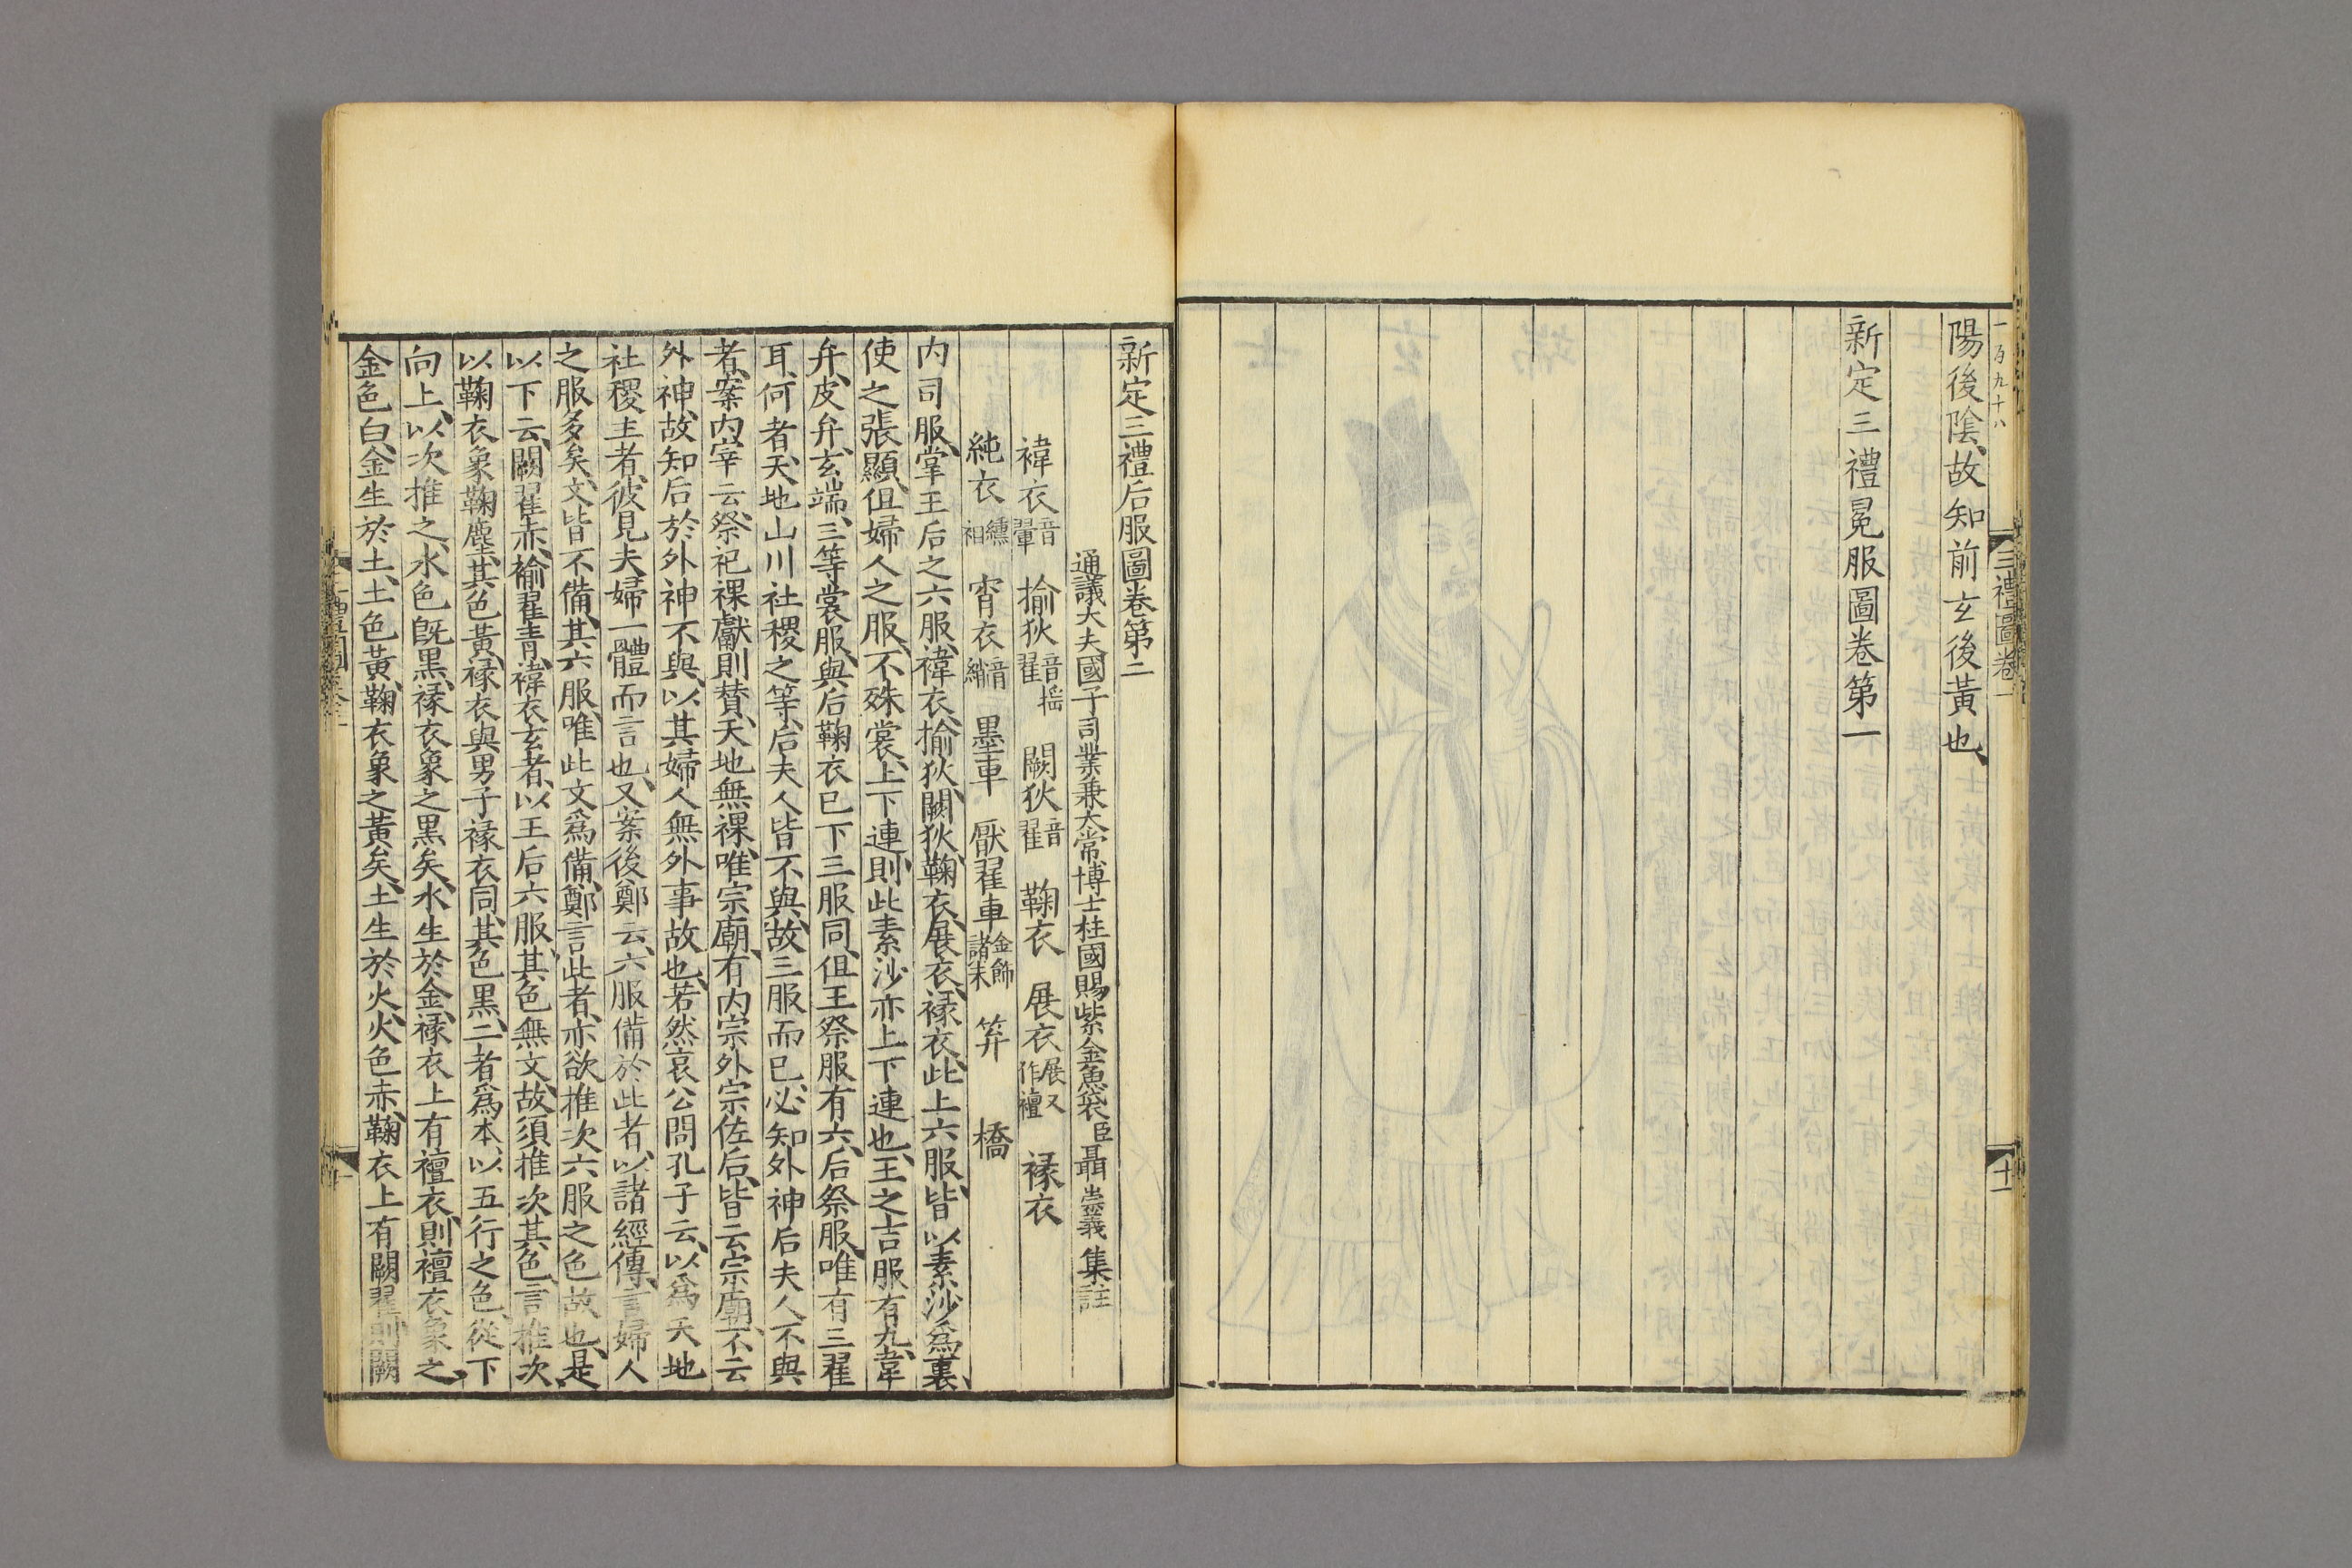 一百九十八
三禮圖卷一
十一
陽後陰、故知前玄後黃也、
新定三禮冕服圖卷第一
新定三禮后服圖卷第二
通議大夫國子司業兼大常博士柱國賜紫金魚袋臣聶崇義集註
褘衣音翬 揄狄音搖翟 闕狄音翟 鞠衣 展衣展又作襢 褖衣
純衣纁袡 宵衣音綃 墨車 厭翟車金飾諸末 笲 橋
内司服、掌王后之六服、褘衣、揄狄、闕狄、鞠衣、展衣、褖衣、此上六服、皆以素沙爲裏、
使之張顯、但婦人之服、不殊裳、上下連、則此素沙亦上下連也、王之吉服有九、韋
弁、皮弁、玄端、三等裳服、與后鞠衣已下三服同、但王祭服有六、后祭服、唯有三翟
耳、何者、天地山川社稷之等、后夫人皆不與、故三服而已、必知外神后夫人不與
者、案内宰云、祭祀祼獻則賛、天地無祼、唯宗廟、有内宗外宗佐后、皆云宗廟、不云
外神、故知后於外神不與、以其婦人無外事故也、若然哀公問孔子云、以爲天地
社稷主者、彼見夫婦一體而言也、又案後鄭云、六服備於此者、以諸經傳、言婦人
之服多矣、文皆不備、其六服、唯此文爲備、鄭言此者、亦欲推次六服之色故也、是
以下云、闕翟赤、褕翟青、褘衣玄者、以王后六服、其色無文、故須推次其色、言推次
以鞠衣象鞠塵、其色黃、褖衣與男子褖衣同、其色黑、二者爲本、以五行之色、從下
向上、以次推之、水色既黑、褖衣象之黑矣、水生於金、褖衣上有襢衣、則襢衣象之
金色白、金生於土、土色黃、鞠衣象之黃矣、土生於火、火色赤、鞠衣上有闕翟、則闕